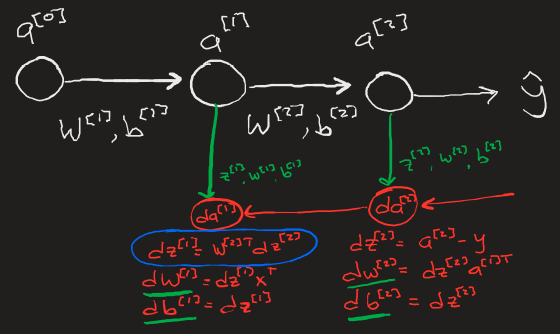 a[0]
a[1]
a[2]
W[1], b[1]
W[2], b[2]
ŷ
z[1], w[1], b[1]
z[2], w[2], b[2]
da[1]
da[2]
dz[1] = W[2]T dz[2]
dw[1] = dz[1] xT
db[1] = dz[1]
dz[2] = a[2] - y
dw[2] = dz[2] a[1]T
db[2] = dz[2]